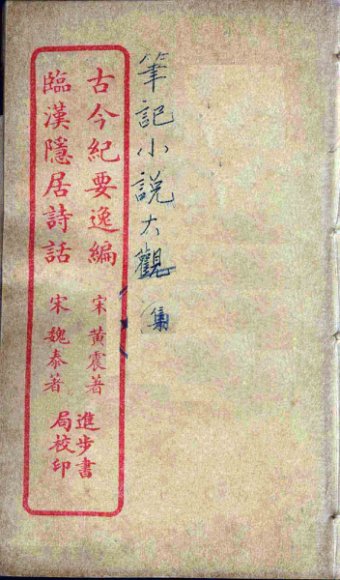 筆記小説大觀 集
古今紀要逸編 宋 黃震著
臨漢隱居詩話 宋 魏泰著
進步書
局校印